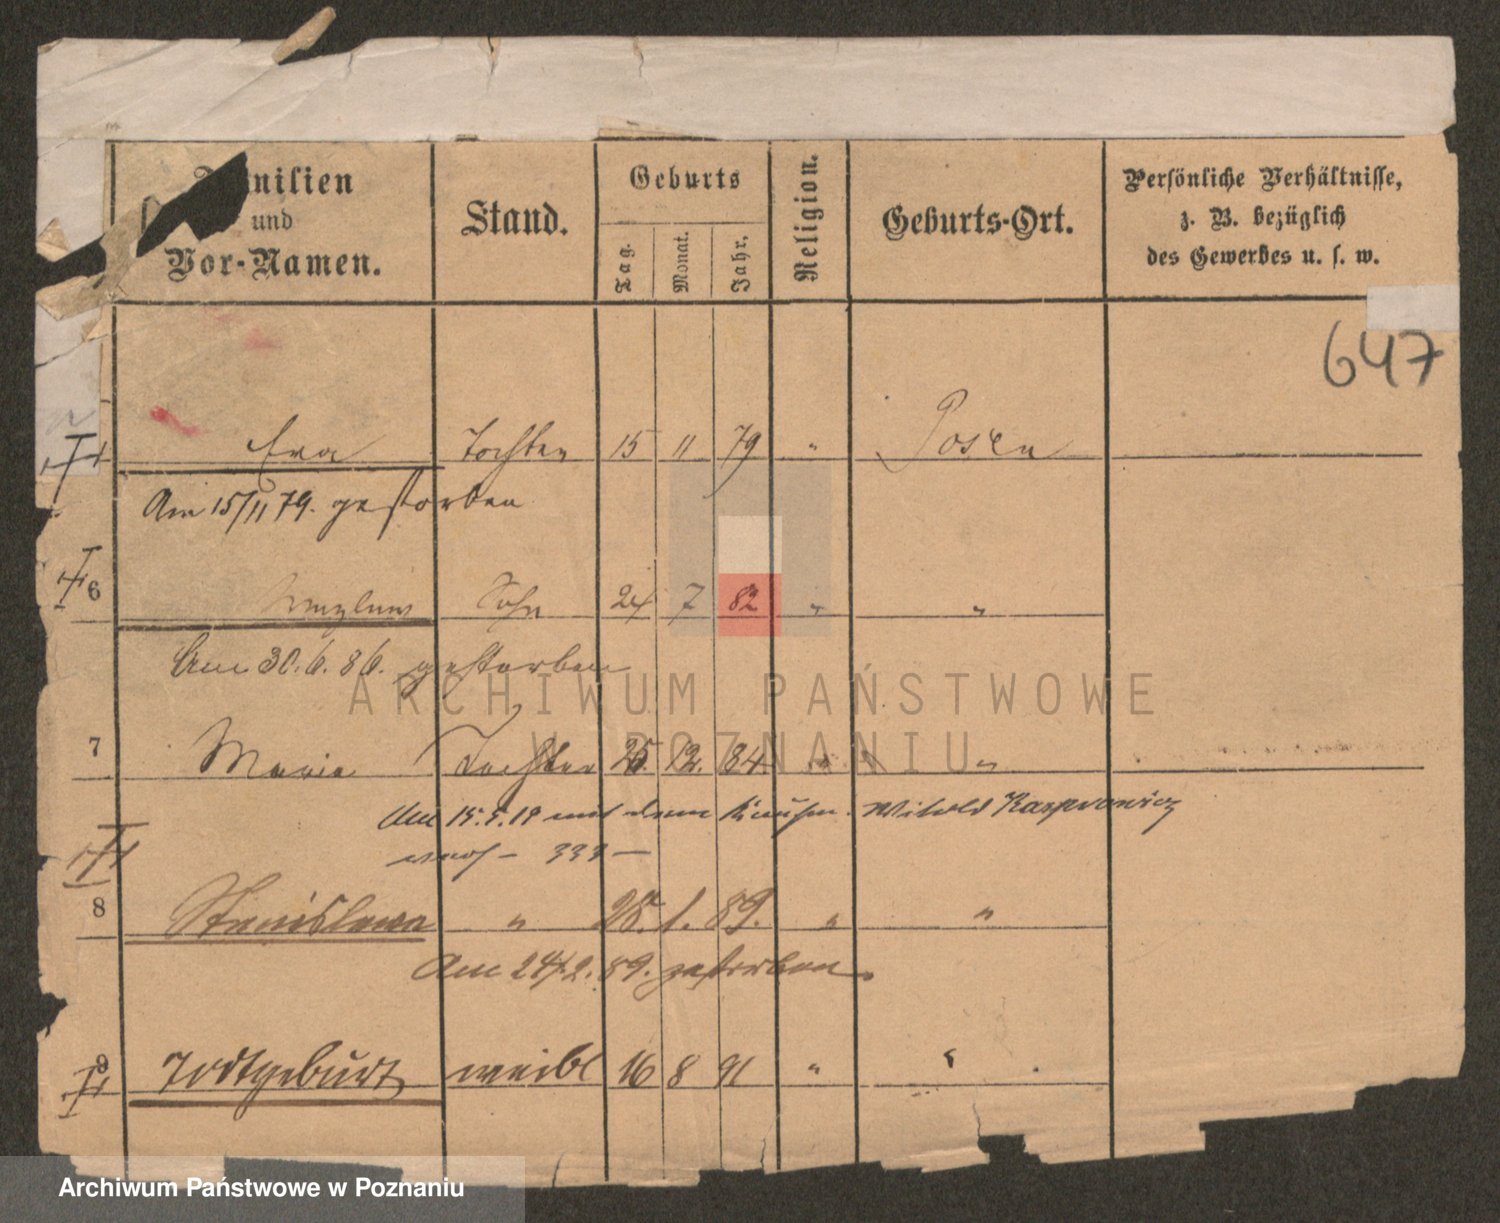 Familien
und
Vor-Namen.
Stand.
Geburts
Tag.
Monat.
Jahr.
Religion.
Geburts-Ort.
Persönliche Verhältnisse,
z. B. bezüglich
des Gewerbes u. s. w.
647
Eva Tochter 15 11 79 " Posen
Am 15/11 79. gestorben
6 Sohn 24 7 82 " "
Am 30.6.86. gestorben
7 Maria Tochter 25. 12. 84 " "
Am 15.5.19 mit dem Kaufm. Witold Kasprowicz
verh – 333 –
8 Stanislawa " 28. 1. 89. " "
Am 24.2.89. gestorben.
9 Todtgeburt weibl 16 8 91 " "
ARCHIWUM PAŃSTWOWE
W POZNANIU
Archiwum Państwowe w Poznaniu